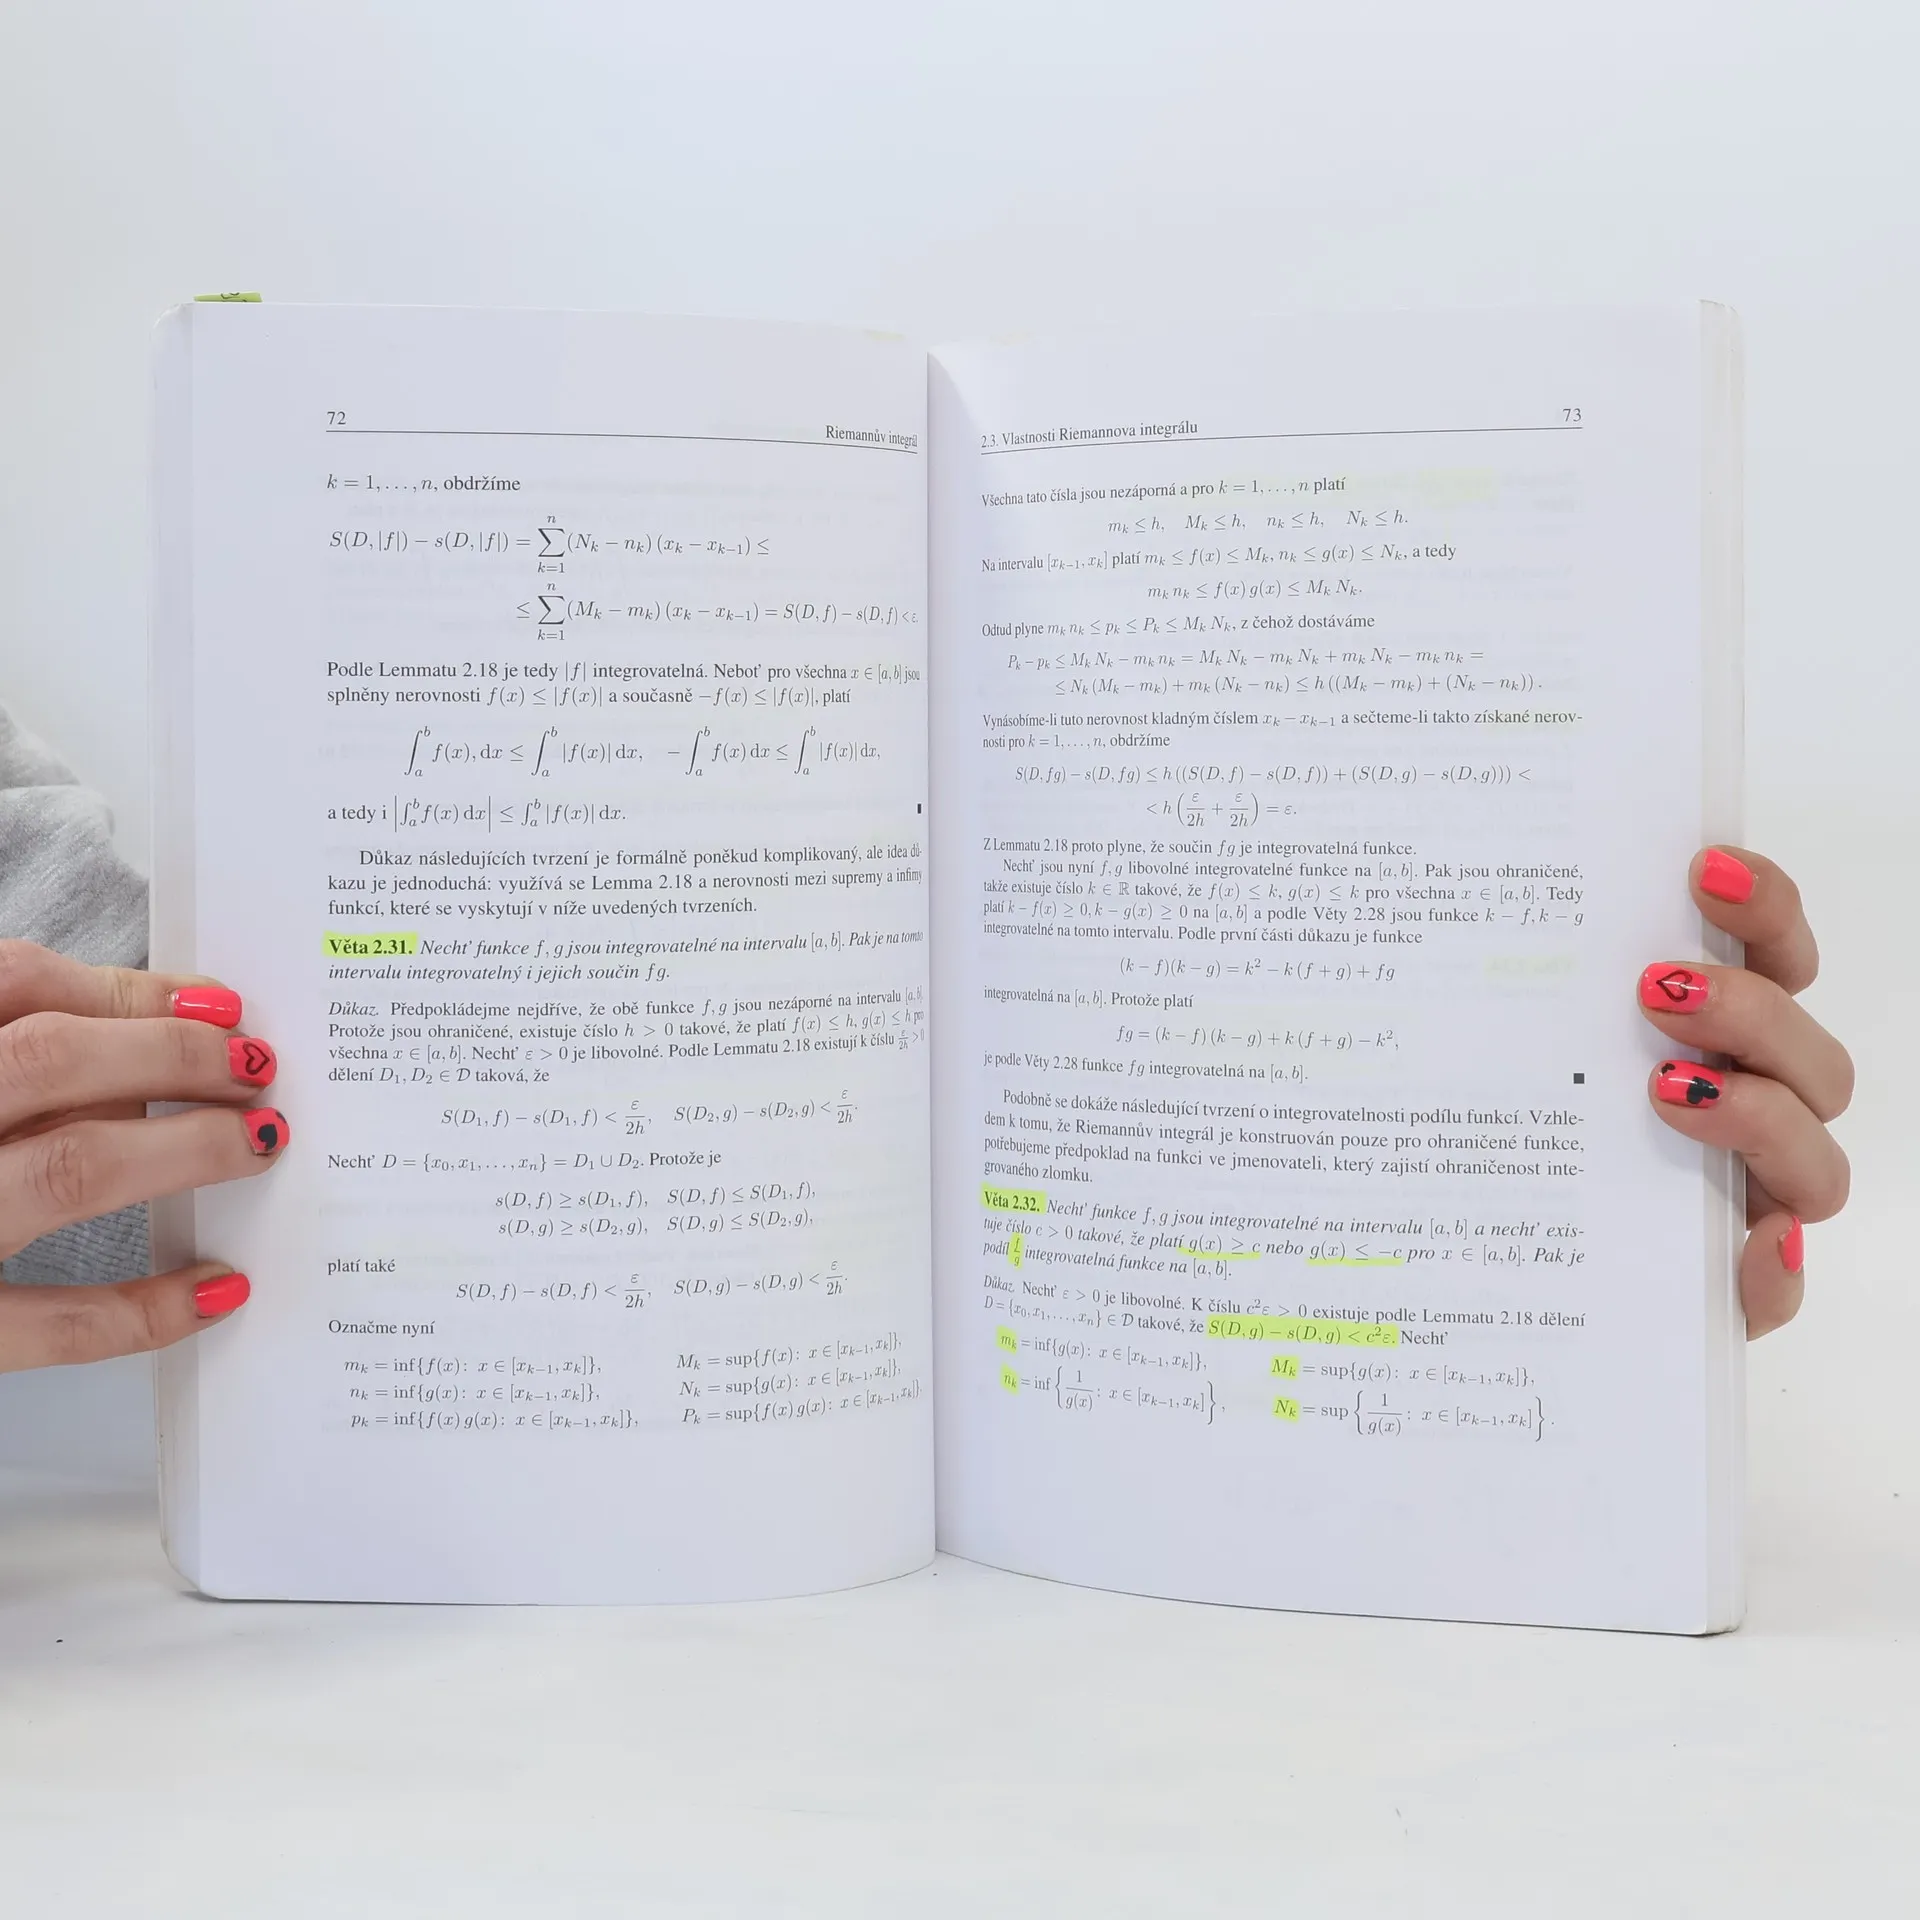 72
Riemannův integrál
k = 1, . . . , n, obdržíme
S(D, |f|) − s(D, |f|) = ∑_{k=1}^{n} (N_k − n_k) (x_k − x_{k−1}) ≤
≤ ∑_{k=1}^{n} (M_k − m_k) (x_k − x_{k−1}) = S(D, f) − s(D, f) < ε.
Podle Lemmatu 2.18 je tedy |f| integrovatelná. Neboť pro všechna x ∈ [a, b] jsou
splněny nerovnosti f(x) ≤ |f(x)| a současně −f(x) ≤ |f(x)|, platí
∫_a^b f(x), dx ≤ ∫_a^b |f(x)| dx, − ∫_a^b f(x) dx ≤ ∫_a^b |f(x)| dx,
a tedy i |∫_a^b f(x) dx| ≤ ∫_a^b |f(x)| dx. ∎
Důkaz následujících tvrzení je formálně poněkud komplikovaný, ale idea dů-
kazu je jednoduchá: využívá se Lemma 2.18 a nerovnosti mezi supremy a infimy
funkcí, které se vyskytují v níže uvedených tvrzeních.
Věta 2.31. Nechť funkce f, g jsou integrovatelné na intervalu [a, b]. Pak je na tomto
intervalu integrovatelný i jejich součin fg.
Důkaz. Předpokládejme nejdříve, že obě funkce f, g jsou nezáporné na intervalu [a, b].
Protože jsou ohraničené, existuje číslo h > 0 takové, že platí f(x) ≤ h, g(x) ≤ h pro
všechna x ∈ [a, b]. Nechť ε > 0 je libovolné. Podle Lemmatu 2.18 existují k číslu ε/2h > 0
dělení D₁, D₂ ∈ 𝒟 taková, že
S(D₁, f) − s(D₁, f) < ε/2h, S(D₂, g) − s(D₂, g) < ε/2h.
Nechť D = {x₀, x₁, . . . , x_n} = D₁ ∪ D₂. Protože je
s(D, f) ≥ s(D₁, f), S(D, f) ≤ S(D₁, f),
s(D, g) ≥ s(D₂, g), S(D, g) ≤ S(D₂, g),
platí také
S(D, f) − s(D, f) < ε/2h, S(D, g) − s(D, g) < ε/2h.
Označme nyní
m_k = inf{f(x): x ∈ [x_{k−1}, x_k]}, M_k = sup{f(x): x ∈ [x_{k−1}, x_k]},
n_k = inf{g(x): x ∈ [x_{k−1}, x_k]}, N_k = sup{g(x): x ∈ [x_{k−1}, x_k]},
p_k = inf{f(x) g(x): x ∈ [x_{k−1}, x_k]}, P_k = sup{f(x) g(x): x ∈ [x_{k−1}, x_k]}.
2.3. Vlastnosti Riemannova integrálu
73
Všechna tato čísla jsou nezáporná a pro k = 1, . . . , n platí
m_k ≤ h, M_k ≤ h, n_k ≤ h, N_k ≤ h.
Na intervalu [x_{k−1}, x_k] platí m_k ≤ f(x) ≤ M_k, n_k ≤ g(x) ≤ N_k, a tedy
m_k n_k ≤ f(x) g(x) ≤ M_k N_k.
Odtud plyne m_k n_k ≤ p_k ≤ P_k ≤ M_k N_k, z čehož dostáváme
P_k − p_k ≤ M_k N_k − m_k n_k = M_k N_k − m_k N_k + m_k N_k − m_k n_k =
≤ N_k (M_k − m_k) + m_k (N_k − n_k) ≤ h ((M_k − m_k) + (N_k − n_k)) .
Vynásobíme-li tuto nerovnost kladným číslem x_k − x_{k−1} a sečteme-li takto získané nerov-
nosti pro k = 1, . . . , n, obdržíme
S(D, fg) − s(D, fg) ≤ h ((S(D, f) − s(D, f)) + (S(D, g) − s(D, g))) <
< h (ε/2h + ε/2h) = ε.
Z Lemmatu 2.18 proto plyne, že součin fg je integrovatelná funkce.
Nechť jsou nyní f, g libovolné integrovatelné funkce na [a, b]. Pak jsou ohraničené,
takže existuje číslo k ∈ ℝ takové, že f(x) ≤ k, g(x) ≤ k pro všechna x ∈ [a, b]. Tedy
platí k − f(x) ≥ 0, k − g(x) ≥ 0 na [a, b] a podle Věty 2.28 jsou funkce k − f, k − g
integrovatelné na tomto intervalu. Podle první části důkazu je funkce
(k − f)(k − g) = k² − k (f + g) + fg
integrovatelná na [a, b]. Protože platí
fg = (k − f) (k − g) + k (f + g) − k²,
je podle Věty 2.28 funkce fg integrovatelná na [a, b]. ∎
Podobně se dokáže následující tvrzení o integrovatelnosti podílu funkcí. Vzhle-
dem k tomu, že Riemannův integrál je konstruován pouze pro ohraničené funkce,
potřebujeme předpoklad na funkci ve jmenovateli, který zajistí ohraničenost inte-
grovaného zlomku.
Věta 2.32. Nechť funkce f, g jsou integrovatelné na intervalu [a, b] a nechť exis-
tuje číslo c > 0 takové, že platí g(x) ≥ c nebo g(x) ≤ −c pro x ∈ [a, b]. Pak je
podíl f/g integrovatelná funkce na [a, b].
Důkaz. Nechť ε > 0 je libovolné. K číslu c²ε > 0 existuje podle Lemmatu 2.18 dělení
D = {x₀, x₁, . . . , x_n} ∈ 𝒟 takové, že S(D, g) − s(D, g) < c²ε. Nechť
m_k = inf{g(x): x ∈ [x_{k−1}, x_k]}, M_k = sup{g(x): x ∈ [x_{k−1}, x_k]},
n_k = inf {1/g(x): x ∈ [x_{k−1}, x_k]}, N_k = sup {1/g(x): x ∈ [x_{k−1}, x_k]}.